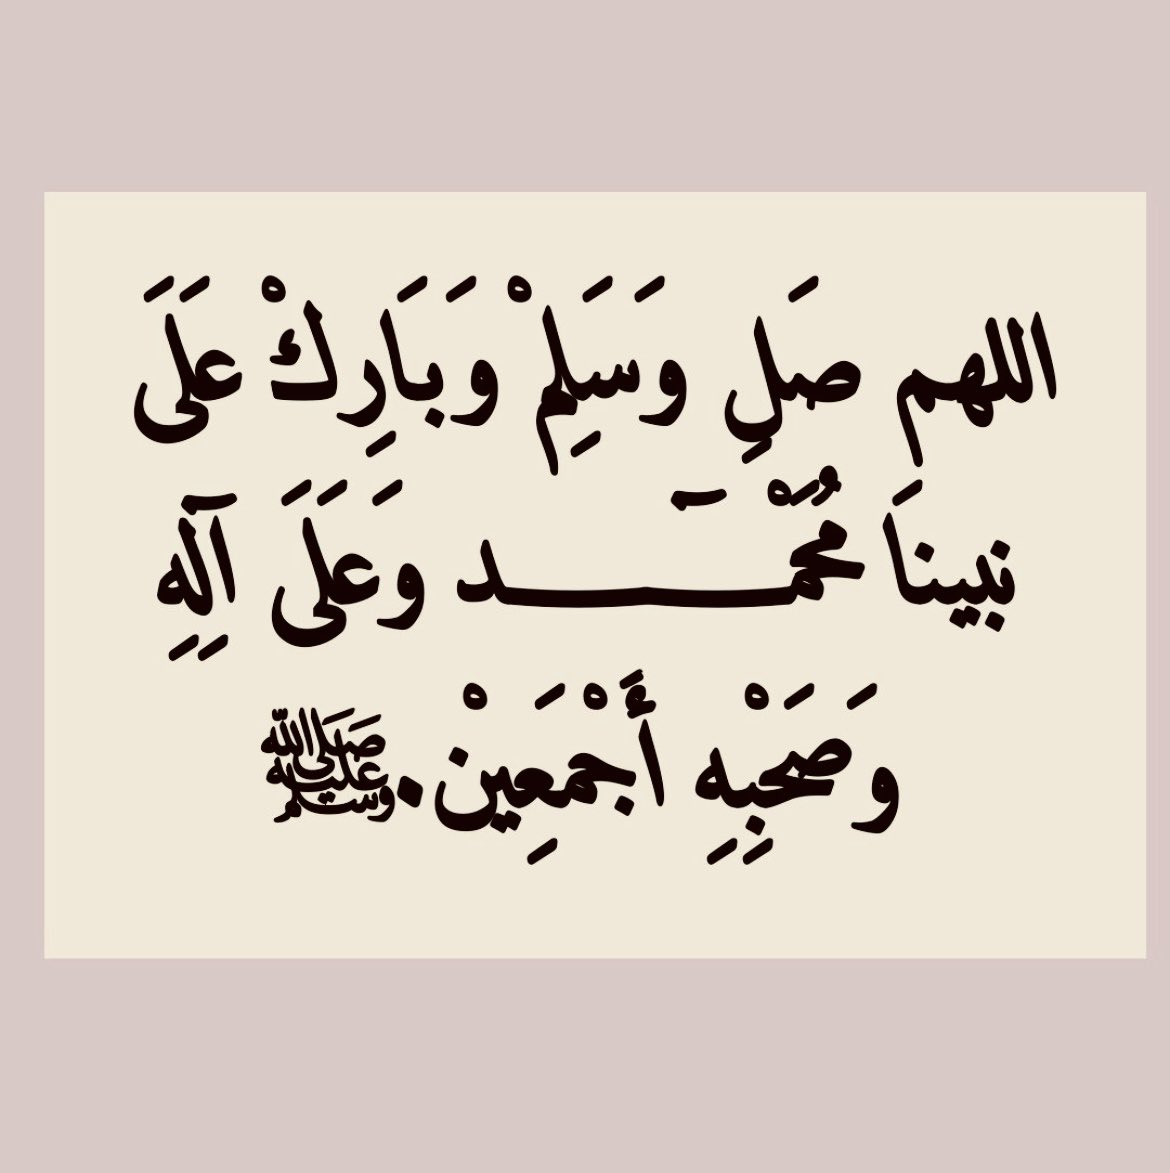 اللهم صَلِ وَسَلِمْ وَبَارِكْ عَلَى
نبيناَ مُحَمْـــــَـــد وعَلَى آلِهِ
وَصَحْبِهِ أَجْمَعِينْ.ﷺ